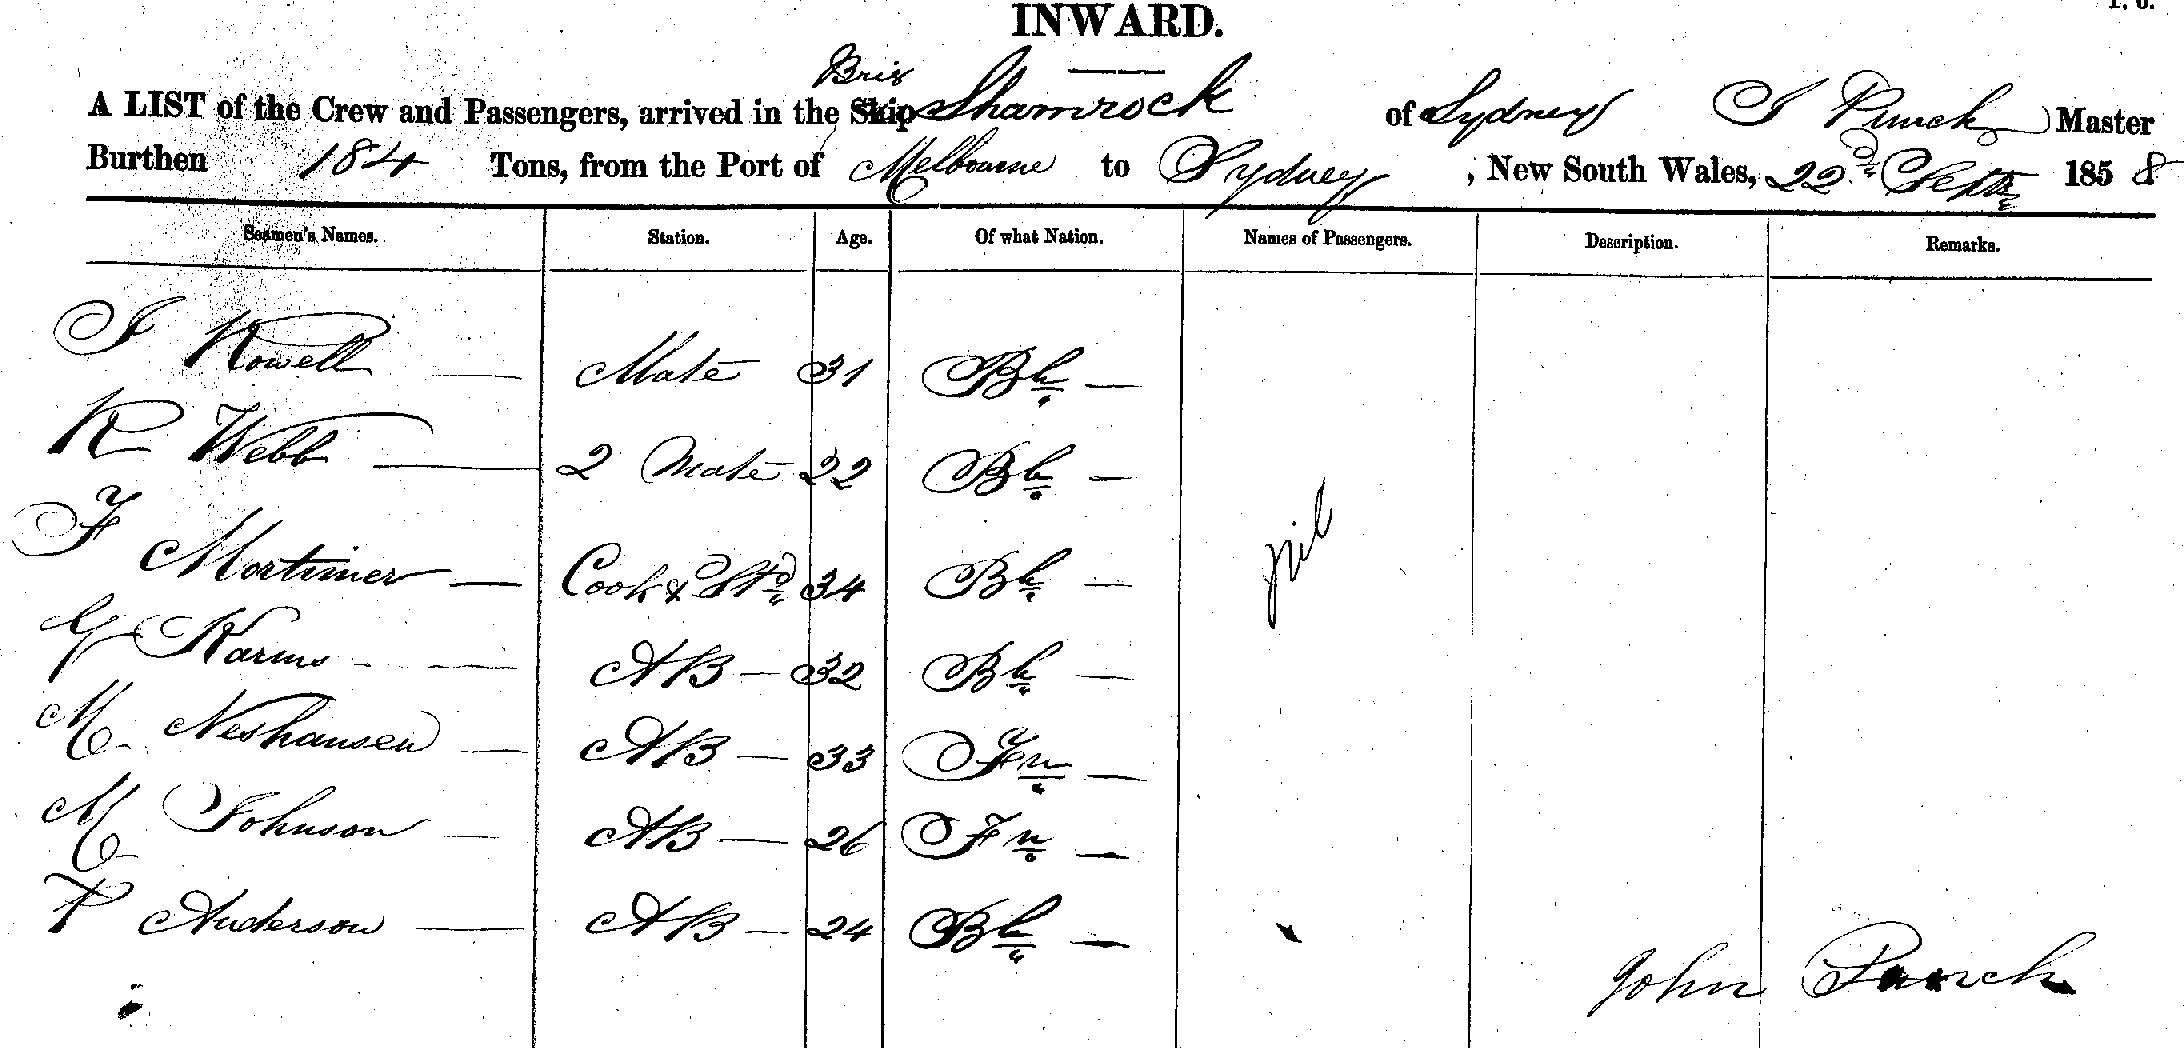 INWARD.
Brig
A LIST of the Crew and Passengers, arrived in the Ship Shamrock of Sydney J Punch Master
Burthen 184 Tons, from the Port of Melbourne to Sydney, New South Wales, 22d Septr 1858
Seamen's Names. Station. Age. Of what Nation. Names of Passengers. Description. Remarks.
J Rowell — Mate 31 Bh —
R Webb — 2 Mate 22 Bh —
F Mortimer — Cook & Std 34 Bh —
nil
G Karms — AB — 32 Bh —
M Neshansen — AB — 33 Fn —
M Johnson — AB — 26 Fn —
Anderson — AB — 24 Bh —
John Punch